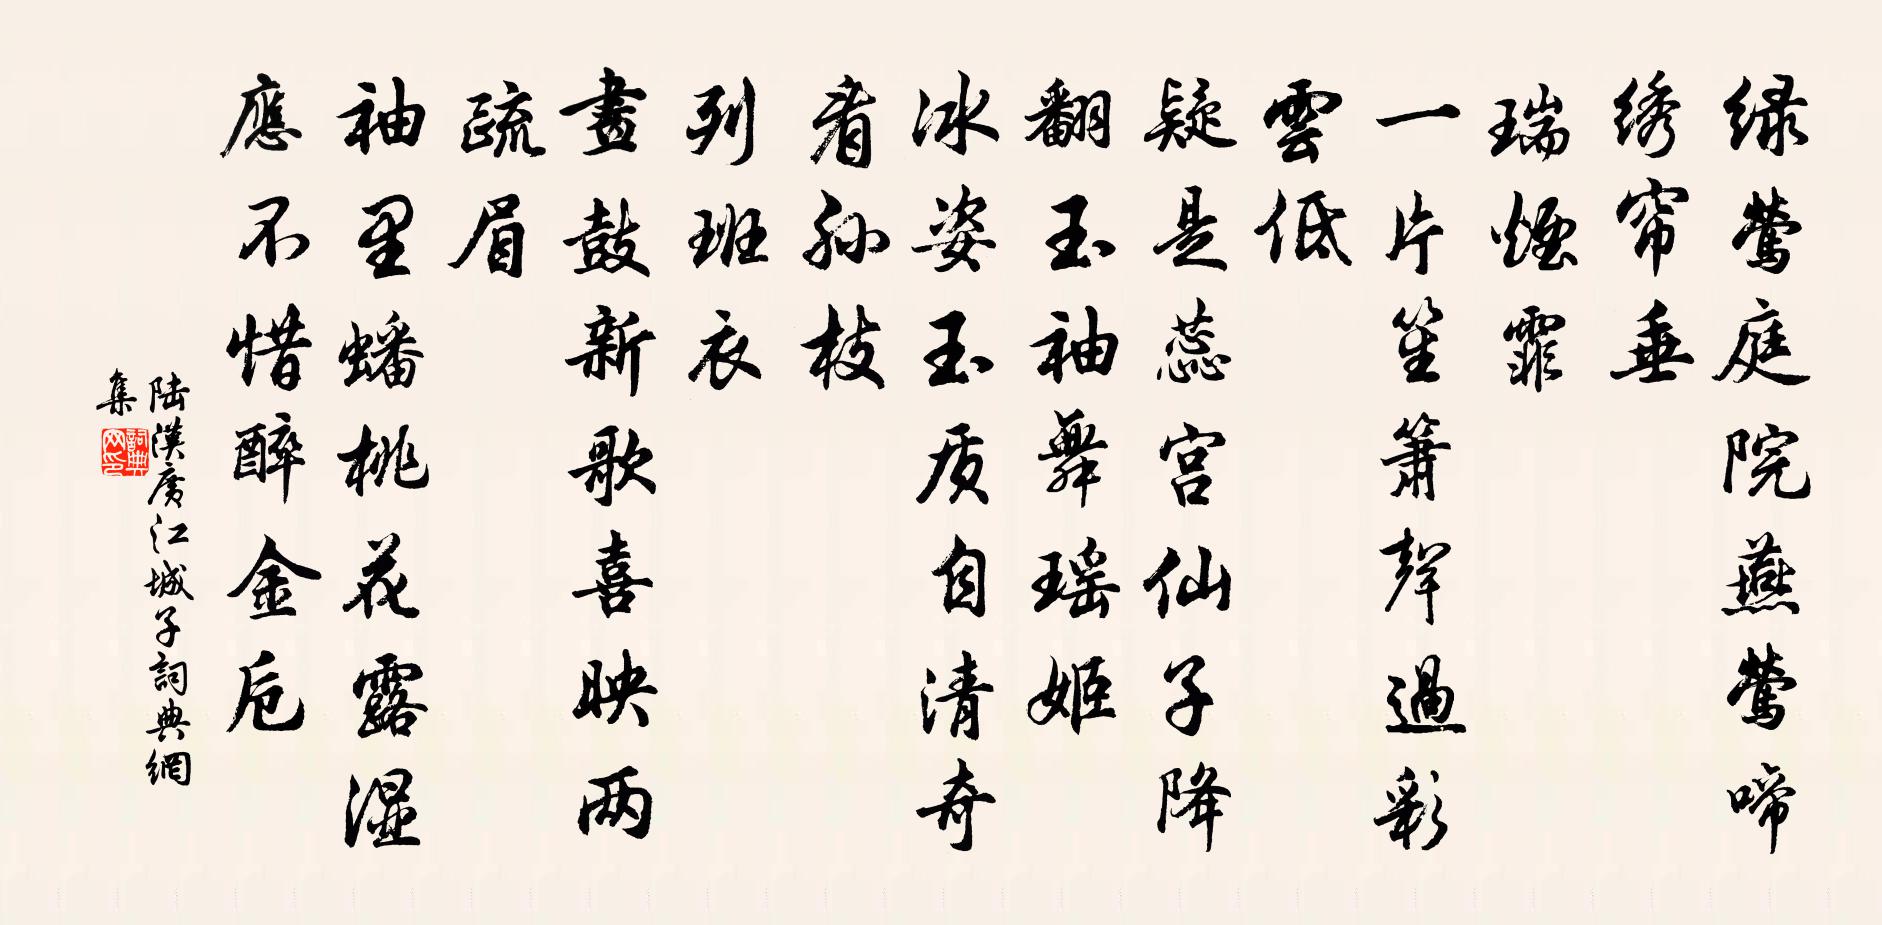 绿莺庭院燕莺啼
绣帘垂
瑞煙霏
一片笙箫聲過彩
雲低
疑是蕊宫仙子降
翻玉袖舞瑶姬
冰姿玉质自清奇
看孙枝
列班衣
畫鼓新歌喜映两
疏眉
袖里蟠桃花露湿
應不惜醉金卮
陆漢廣江城子詞典網
集
詞典网印